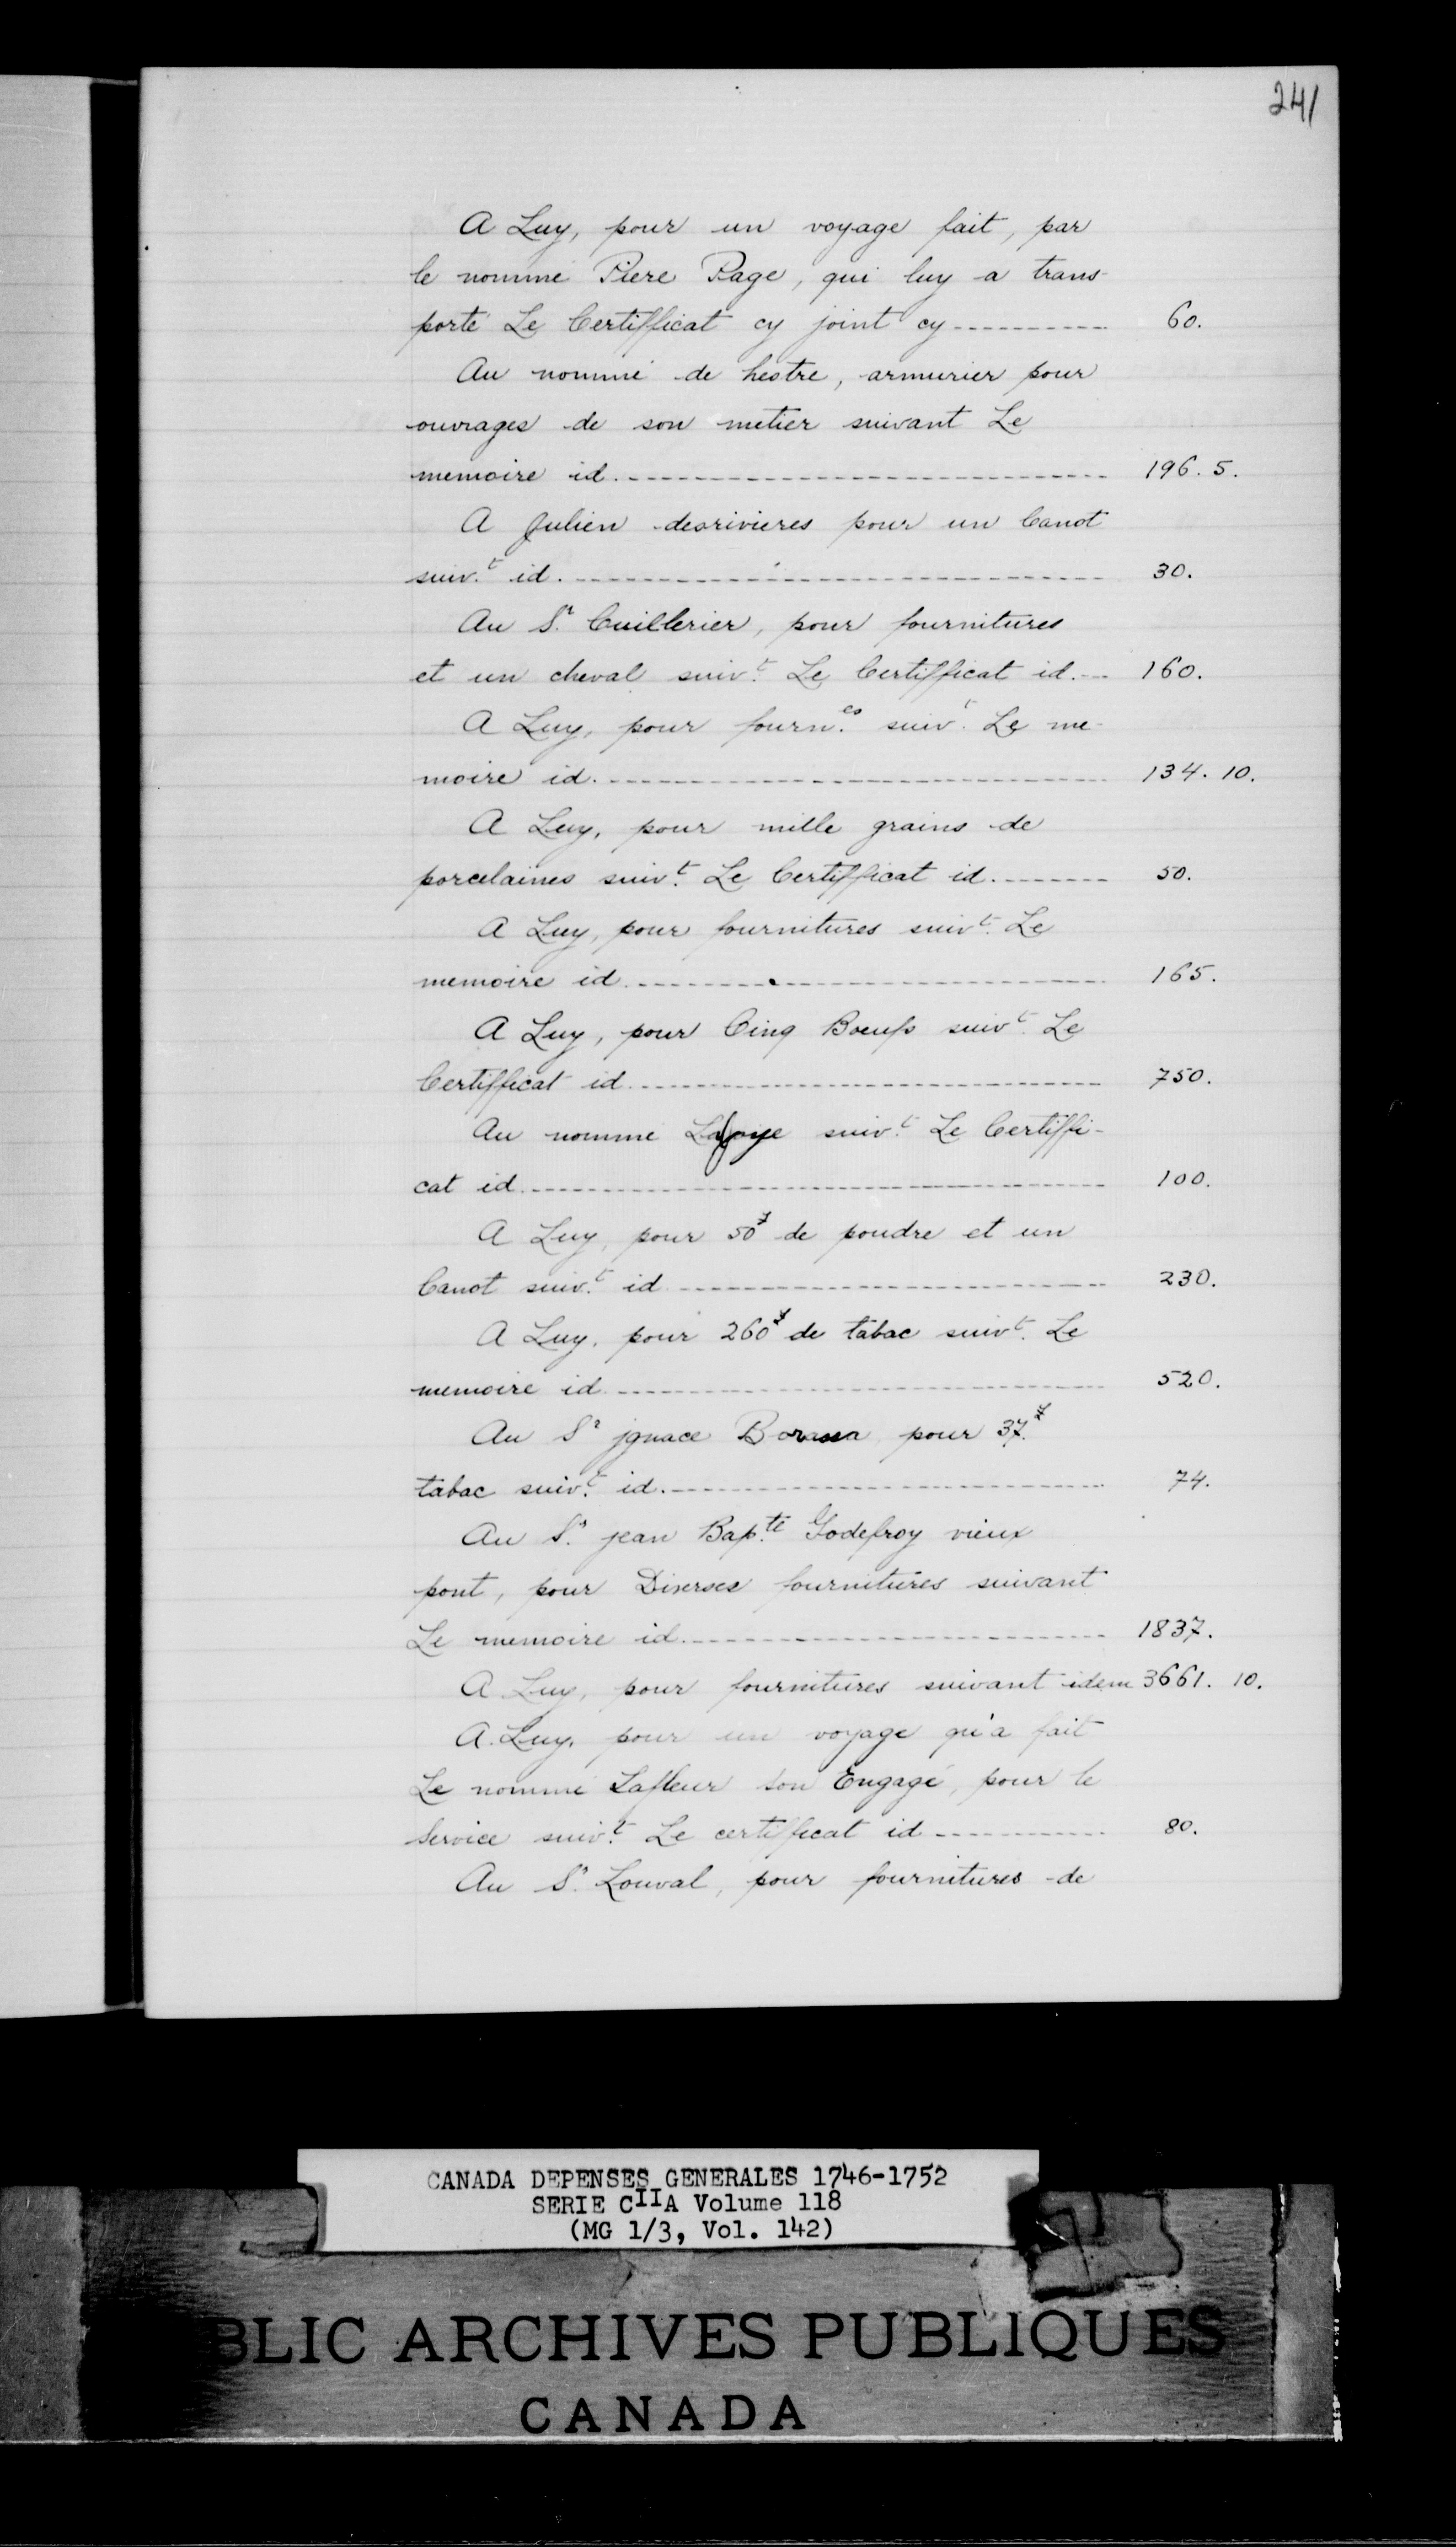 241
A Luy, pour un voyage fait, par
le nommé Piere Page, qui luy a trans-
porté Le Certifficat cy joint cy ---------- 60.
Au nommé de hestre, armurier pour
ouvrages de son metier suivant Le
memoire id. ---------- 196. 5.
A Julien desrivieres pour un Canot
suiv.t id. ---------- 30.
Au Sr. Cuillerier, pour fournitures
et un cheval suiv.t Le Certifficat id. --- 160.
A Luy, pour fourn.es suiv.t Le me-
moire id. ---------- 134. 10.
A Luy, pour mille grains de
porcelaines suiv.t Le Certifficat id. ------- 50.
A Luy, pour fournitures suiv.t Le
memoire id. ---------- 165.
A Luy, pour Cinq Boeufs suiv.t Le
Certifficat id. ---------- 750.
Au nommé suiv.t Le Certiffi-
cat id. ---------- 100.
A Luy, pour 50# de poudre et un
Canot suiv.t id ---------- 230.
A Luy, pour 260# de tabac suiv.t Le
memoire id ---------- 520.
Au Sr jgnace Borassa pour 37#
tabac suiv.t id. ---------- 74.
Au Sr. jean Bap.te Godefroy vieux
pont, pour Diverses fournitures suivant
Le memoire id. ---------- 1837.
A Luy, pour fournitures suivant idem 3661. 10.
A Luy, pour un voyage qu'a fait
Le nommé Lafleur son Engagé, pour le
Service suiv.t Le certifficat id ---------- 80.
Au Sr. Louval, pour fournitures de
CANADA DEPENSES GENERALES 1746-1752
SERIE CIIA Volume 118
(MG 1/3, Vol. 142)
BLIC ARCHIVES PUBLIQUES
CANADA